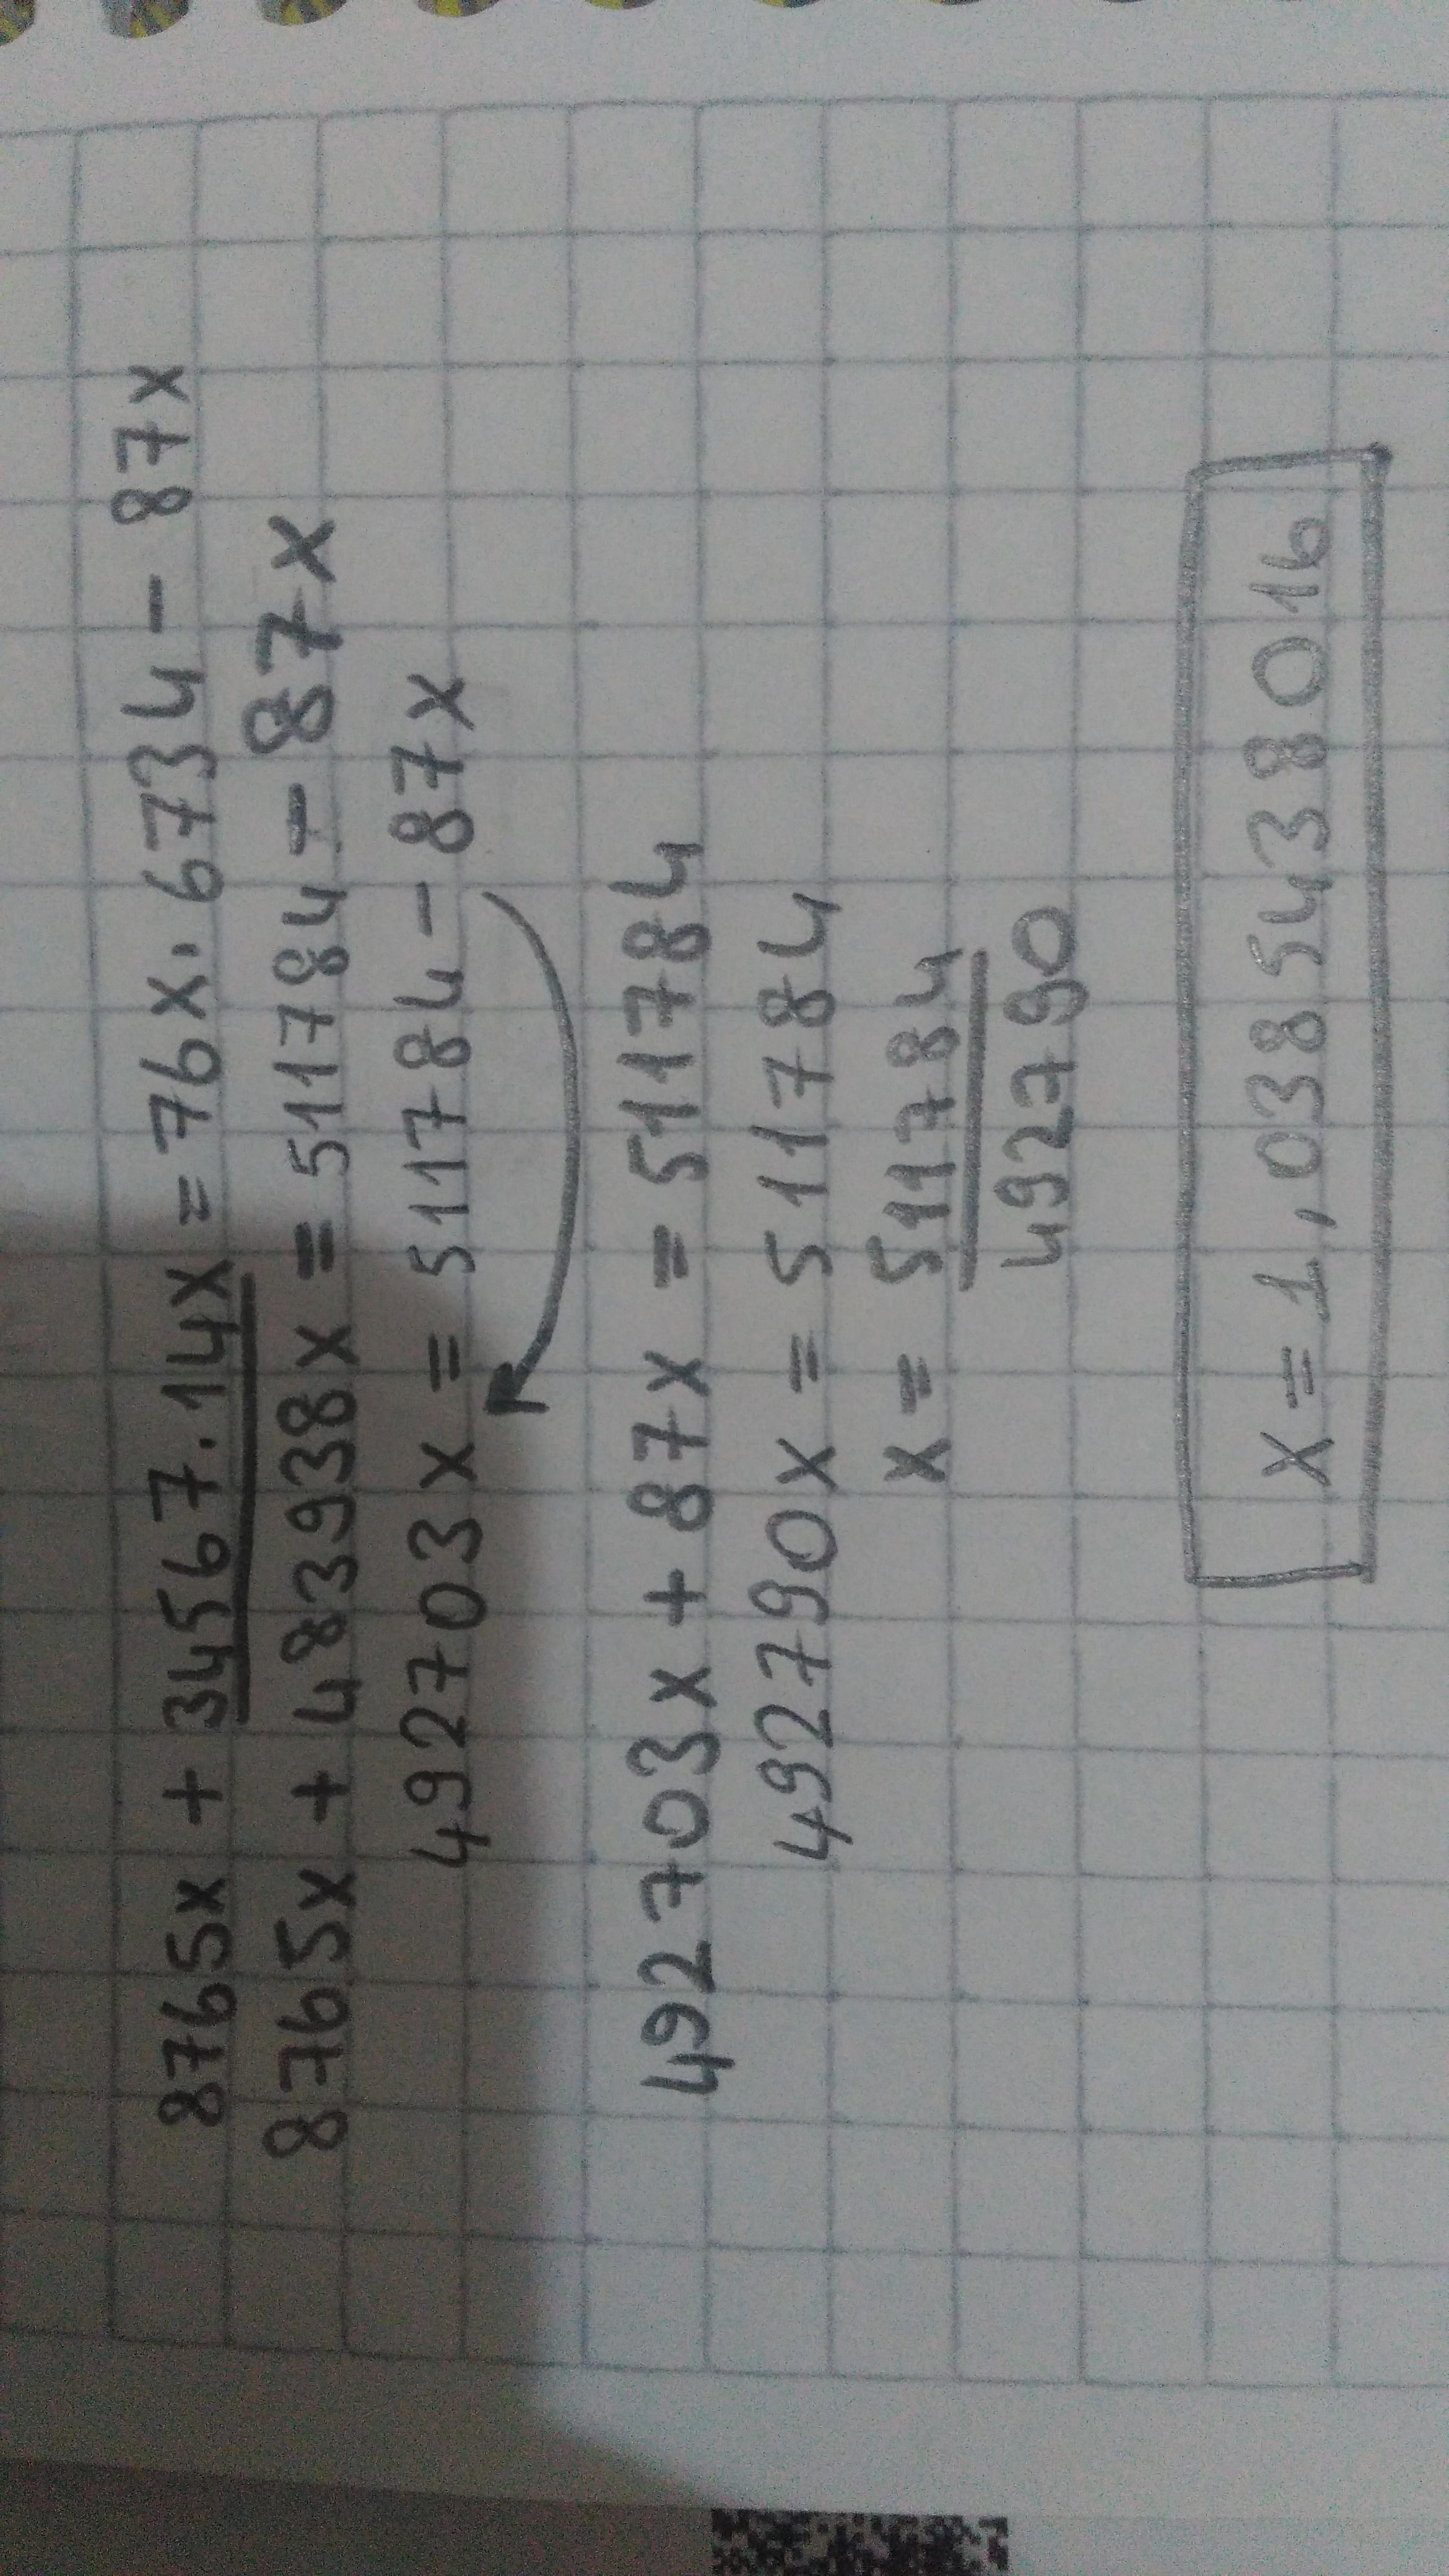 8765x + 34567.14x = 76x.6734 - 87x
8765x + 483938x = 511784 - 87x
492703x = 511784 - 87x
492703x + 87x = 511784
492790x = 511784
x = 511784
492790
x = 1,0385438016